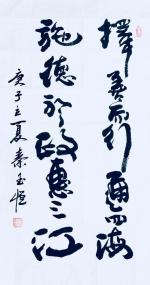 擇善而行通四海
施德於政惠三江
庚子立夏秦玉恒